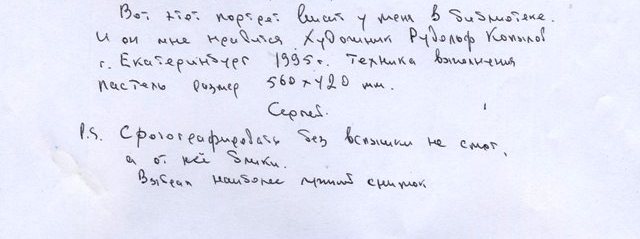 Вот этот портрет висит у меня в библиотеке.
И он мне нравится. Художник Рудольф Копылов
г. Екатеринбург 1995г. Техника выполнения
пастель размер 560×420 мм.
Сергей.
P.S. Сфотографировать без вспышки не смог,
а от неё блики.
Выбрал наиболее лучший снимок